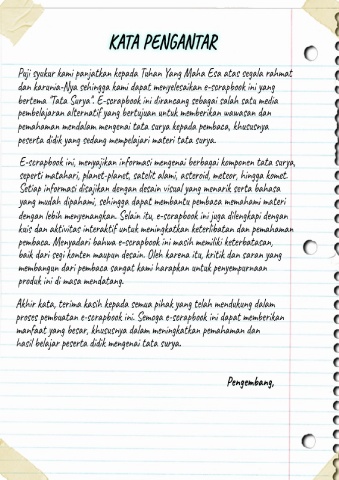 KATA PENGANTAR
Puji syukur kami panjatkan kepada Tuhan Yang Maha Esa atas segala rahmat
dan karunia-Nya sehingga kami dapat menyelesaikan e-scrapbook ini yang
bertema "Tata Surya". E-scrapbook ini dirancang sebagai salah satu media
pembelajaran alternatif yang bertujuan untuk memberikan wawasan dan
pemahaman mendalam mengenai tata surya kepada pembaca, khususnya
peserta didik yang sedang mempelajari materi tata surya.
E-scrapbook ini, menyajikan informasi mengenai berbagai komponen tata surya,
seperti matahari, planet-planet, satelit alami, asteroid, meteor, hingga komet.
Setiap informasi disajikan dengan desain visual yang menarik serta bahasa
yang mudah dipahami, sehingga dapat membantu pembaca memahami materi
dengan lebih menyenangkan. Selain itu, e-scrapbook ini juga dilengkapi dengan
kuis dan aktivitas interaktif untuk meningkatkan keterlibatan dan pemahaman
pembaca. Menyadari bahwa e-scrapbook ini masih memiliki keterbatasan,
baik dari segi konten maupun desain. Oleh karena itu, kritik dan saran yang
membangun dari pembaca sangat kami harapkan untuk penyempurnaan
produk ini di masa mendatang.
Akhir kata, terima kasih kepada semua pihak yang telah mendukung dalam
proses pembuatan e-scrapbook ini. Semoga e-scrapbook ini dapat memberikan
manfaat yang besar, khususnya dalam meningkatkan pemahaman dan
hasil belajar peserta didik mengenai tata surya.
Pengembang,